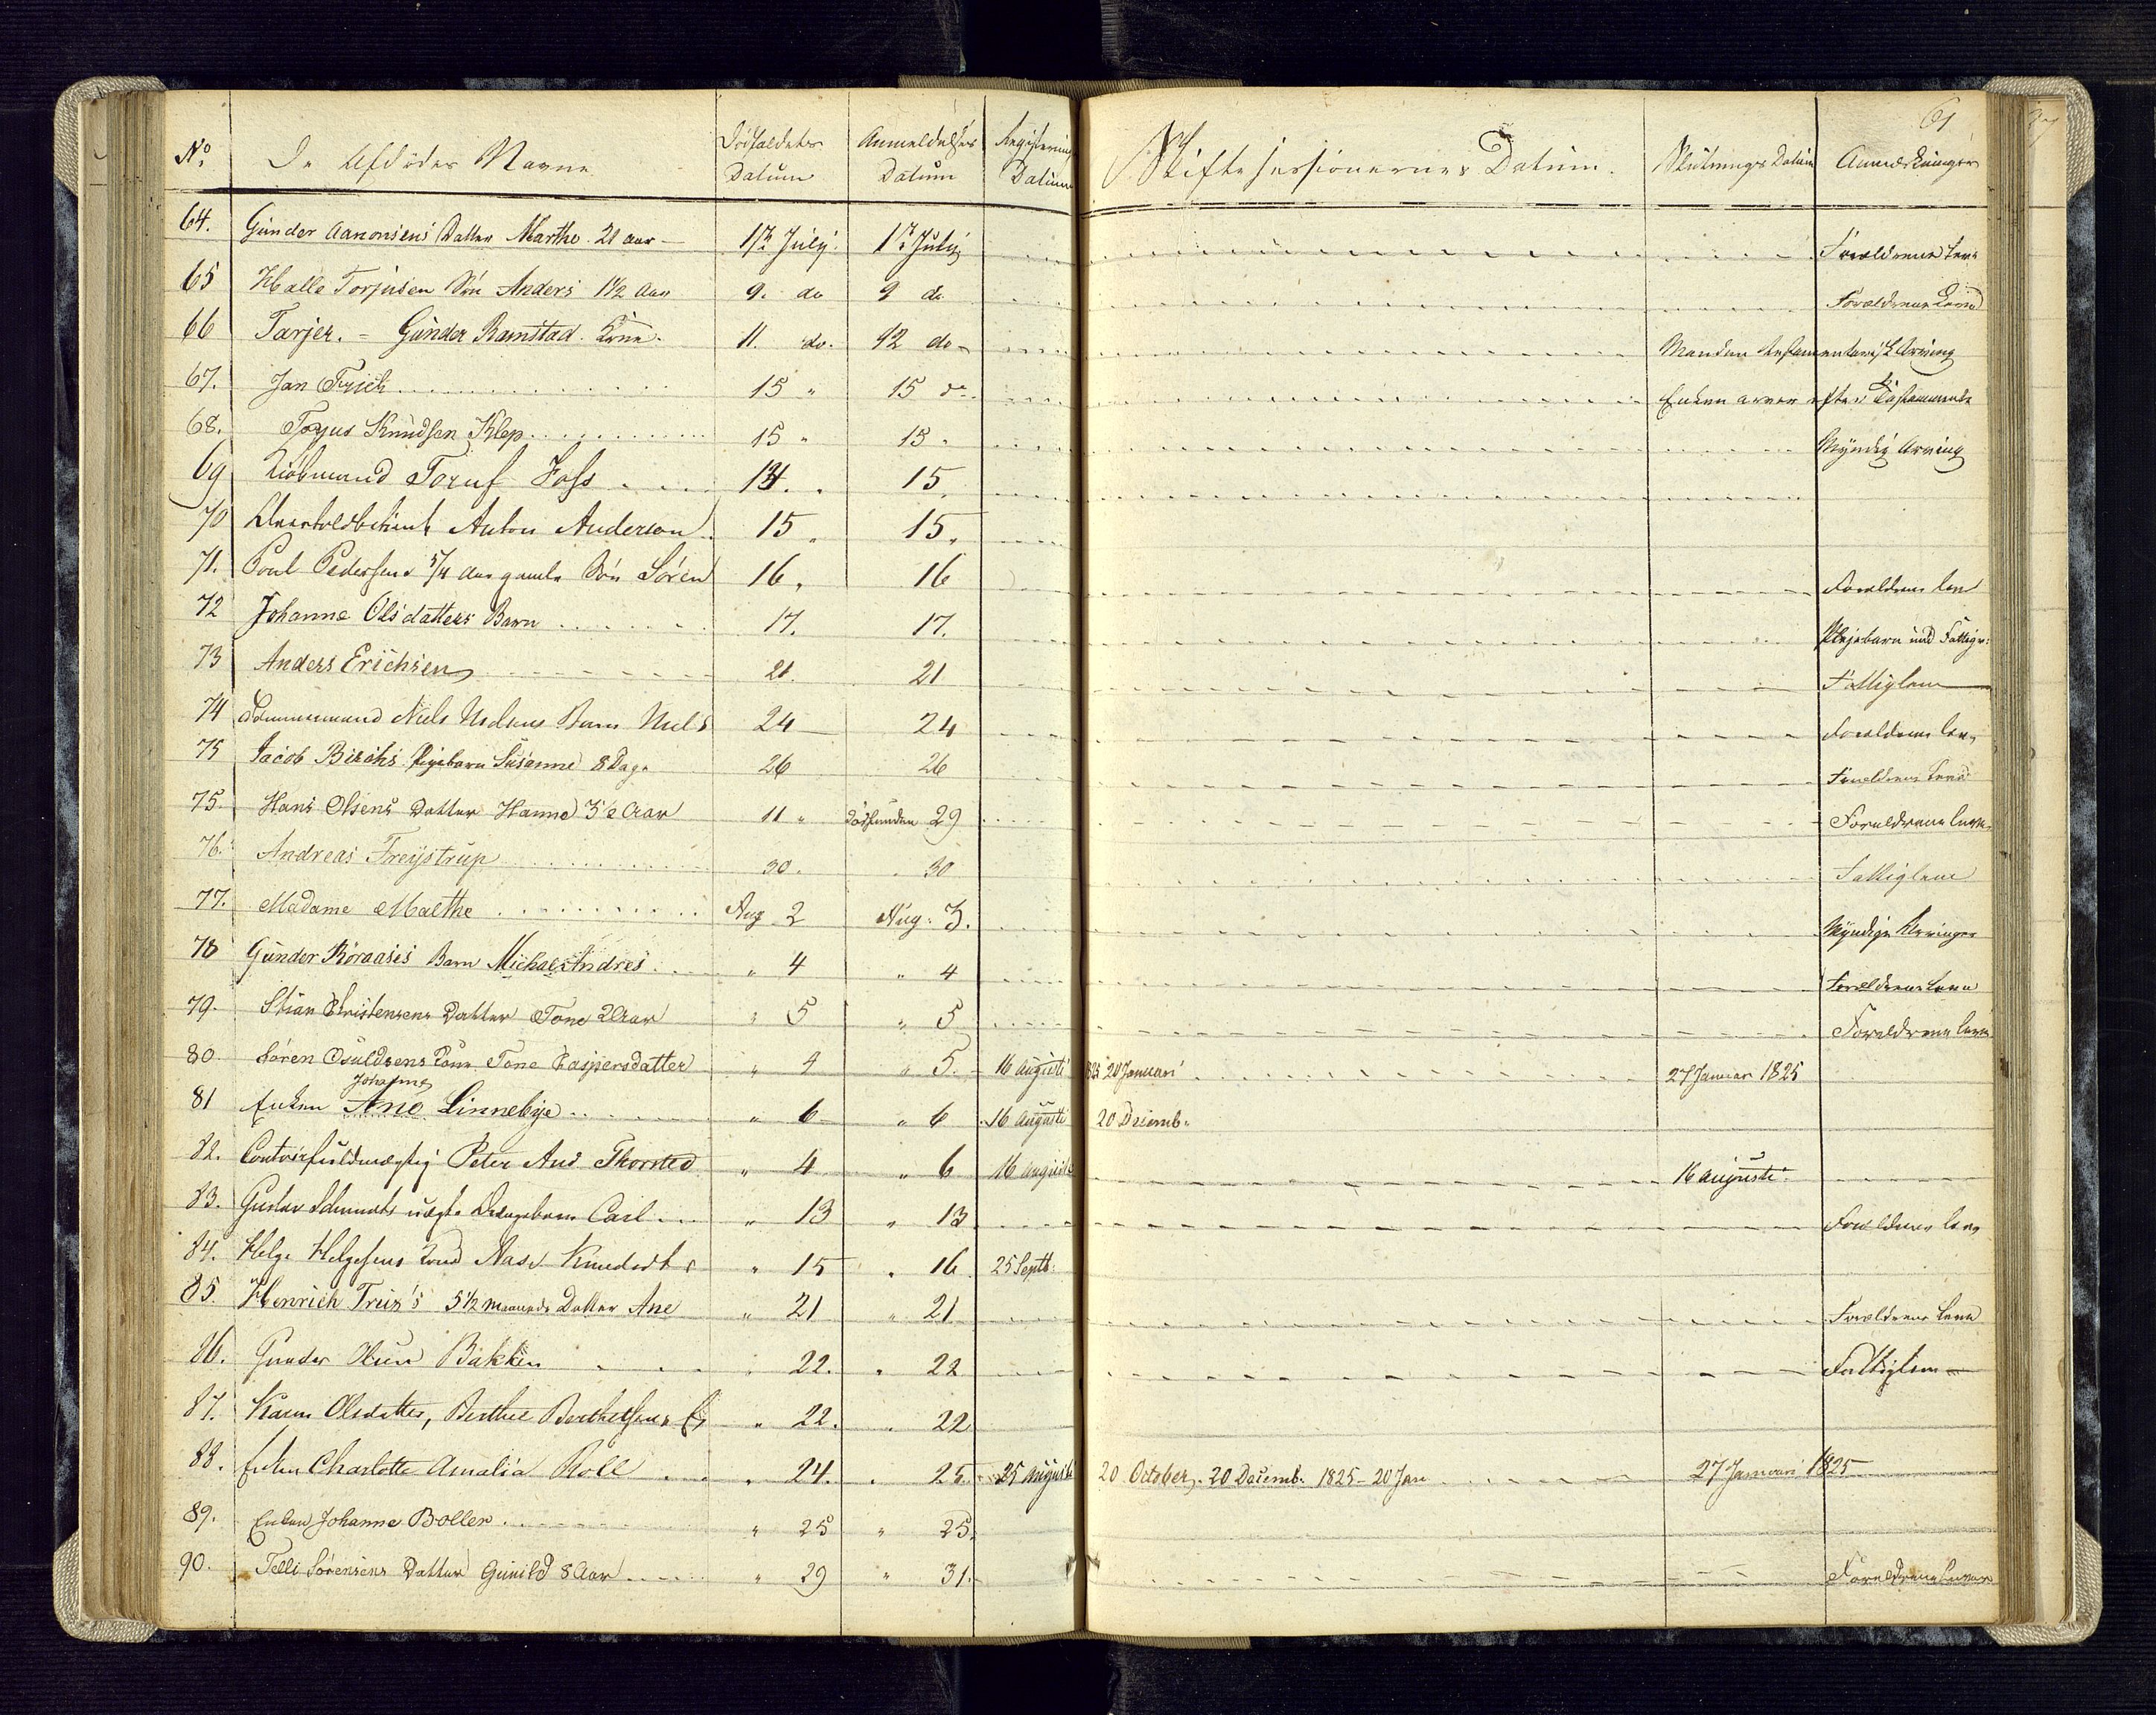 61
No. De Afdödes Navne Dödsfaldets Datum Anmeldelses Datum Registerings Datum Skiftesessionernes Datum. Slutnings Datum Anmærkninger
64. Gunder Aanonsens Datter Marthe. 21 aar 17 July. 17 July Forældrene leve
65 Halle Torjusen Sön Anders 1 1/2 Aar 9. do 9 do Forældrene leve
66 Tarjer. = Gunder Ramstad. Kone. 11. do. 12 do Manden testamentarisk Arving
67. Jan Frich 15 " 15 do Enken arver efter Testamente
68. Torjus Knudsen Klep 15 " 15 " Myndig Arving
69 Kiöbmand Foss 14. 15.
70 Anton Anderson 15 " 15 "
71. Poul Pedersens 5/4 aar gamle Sön Sören 16. 16 Forældrene leve
72 Johanne Olsdatters Barn 17. 17. Plejebarn
73 Anders Erichsen 21. 21 Fattiglem
74 Niels Barn Niels 24 24 Forældrene leve
75 Jacob Birchs Pigebarn Susanne 8 Dage 26 26 Forældrene leve
75. Hans Olsens Datter Hanne 3 1/2 Aar 11 " dödfunden 29 Forældrene leve
76. Andreas Freystrup 30. 30 Fattiglem
77. Madame Malthe Aug 2 Aug: 3. Myndige Arvinger
78 Gunder Röraases Barn Michael Andres " 4 " 4 Forældrene leve
79. Stian Christensens Datter Tone 2 Aar " 5 " 5 Forældrene leve
80 Sören Osuldsens Kone Tone Caspersdatter " 4 " 5. 16 augusti 825 20 Januari 27 Januar 1825
Johanne
81 Enken Ane Linnebye " 6 " 6 16 augusti 20 Decemb.
82. Contoirfuldmægtig Peter And Thorsted " 4 " 6 16 augusti 16 augusti
83. Gustav Schmidts uægte Drengebarn Carl " 13 " 13 Forældrene leve
84. Helge Helgesens Kone Aase Knudsdtr " 15 " 16 25 Septb:
85. Henrich Treis's 5 1/2 Maaneds Datter Ane " 21 " 21 Forældrene leve
86. Gunder Olsen Bakken " 22. " 22 Fattiglem
87. Karen Olsdatter, Berthel Berthelsens " 22. " 22
88. Enken Charlotte Amalia Roll " 24. " 25. 25 augusti 20 October, 20 Decemb. 1825 - 20 Jan 27 Januari 1825
89. Enken Johanne Boller " 25 " 25.
90. Telli Sörensens Datter Gunild 8 Aar " 29 " 31. Forældrene lever